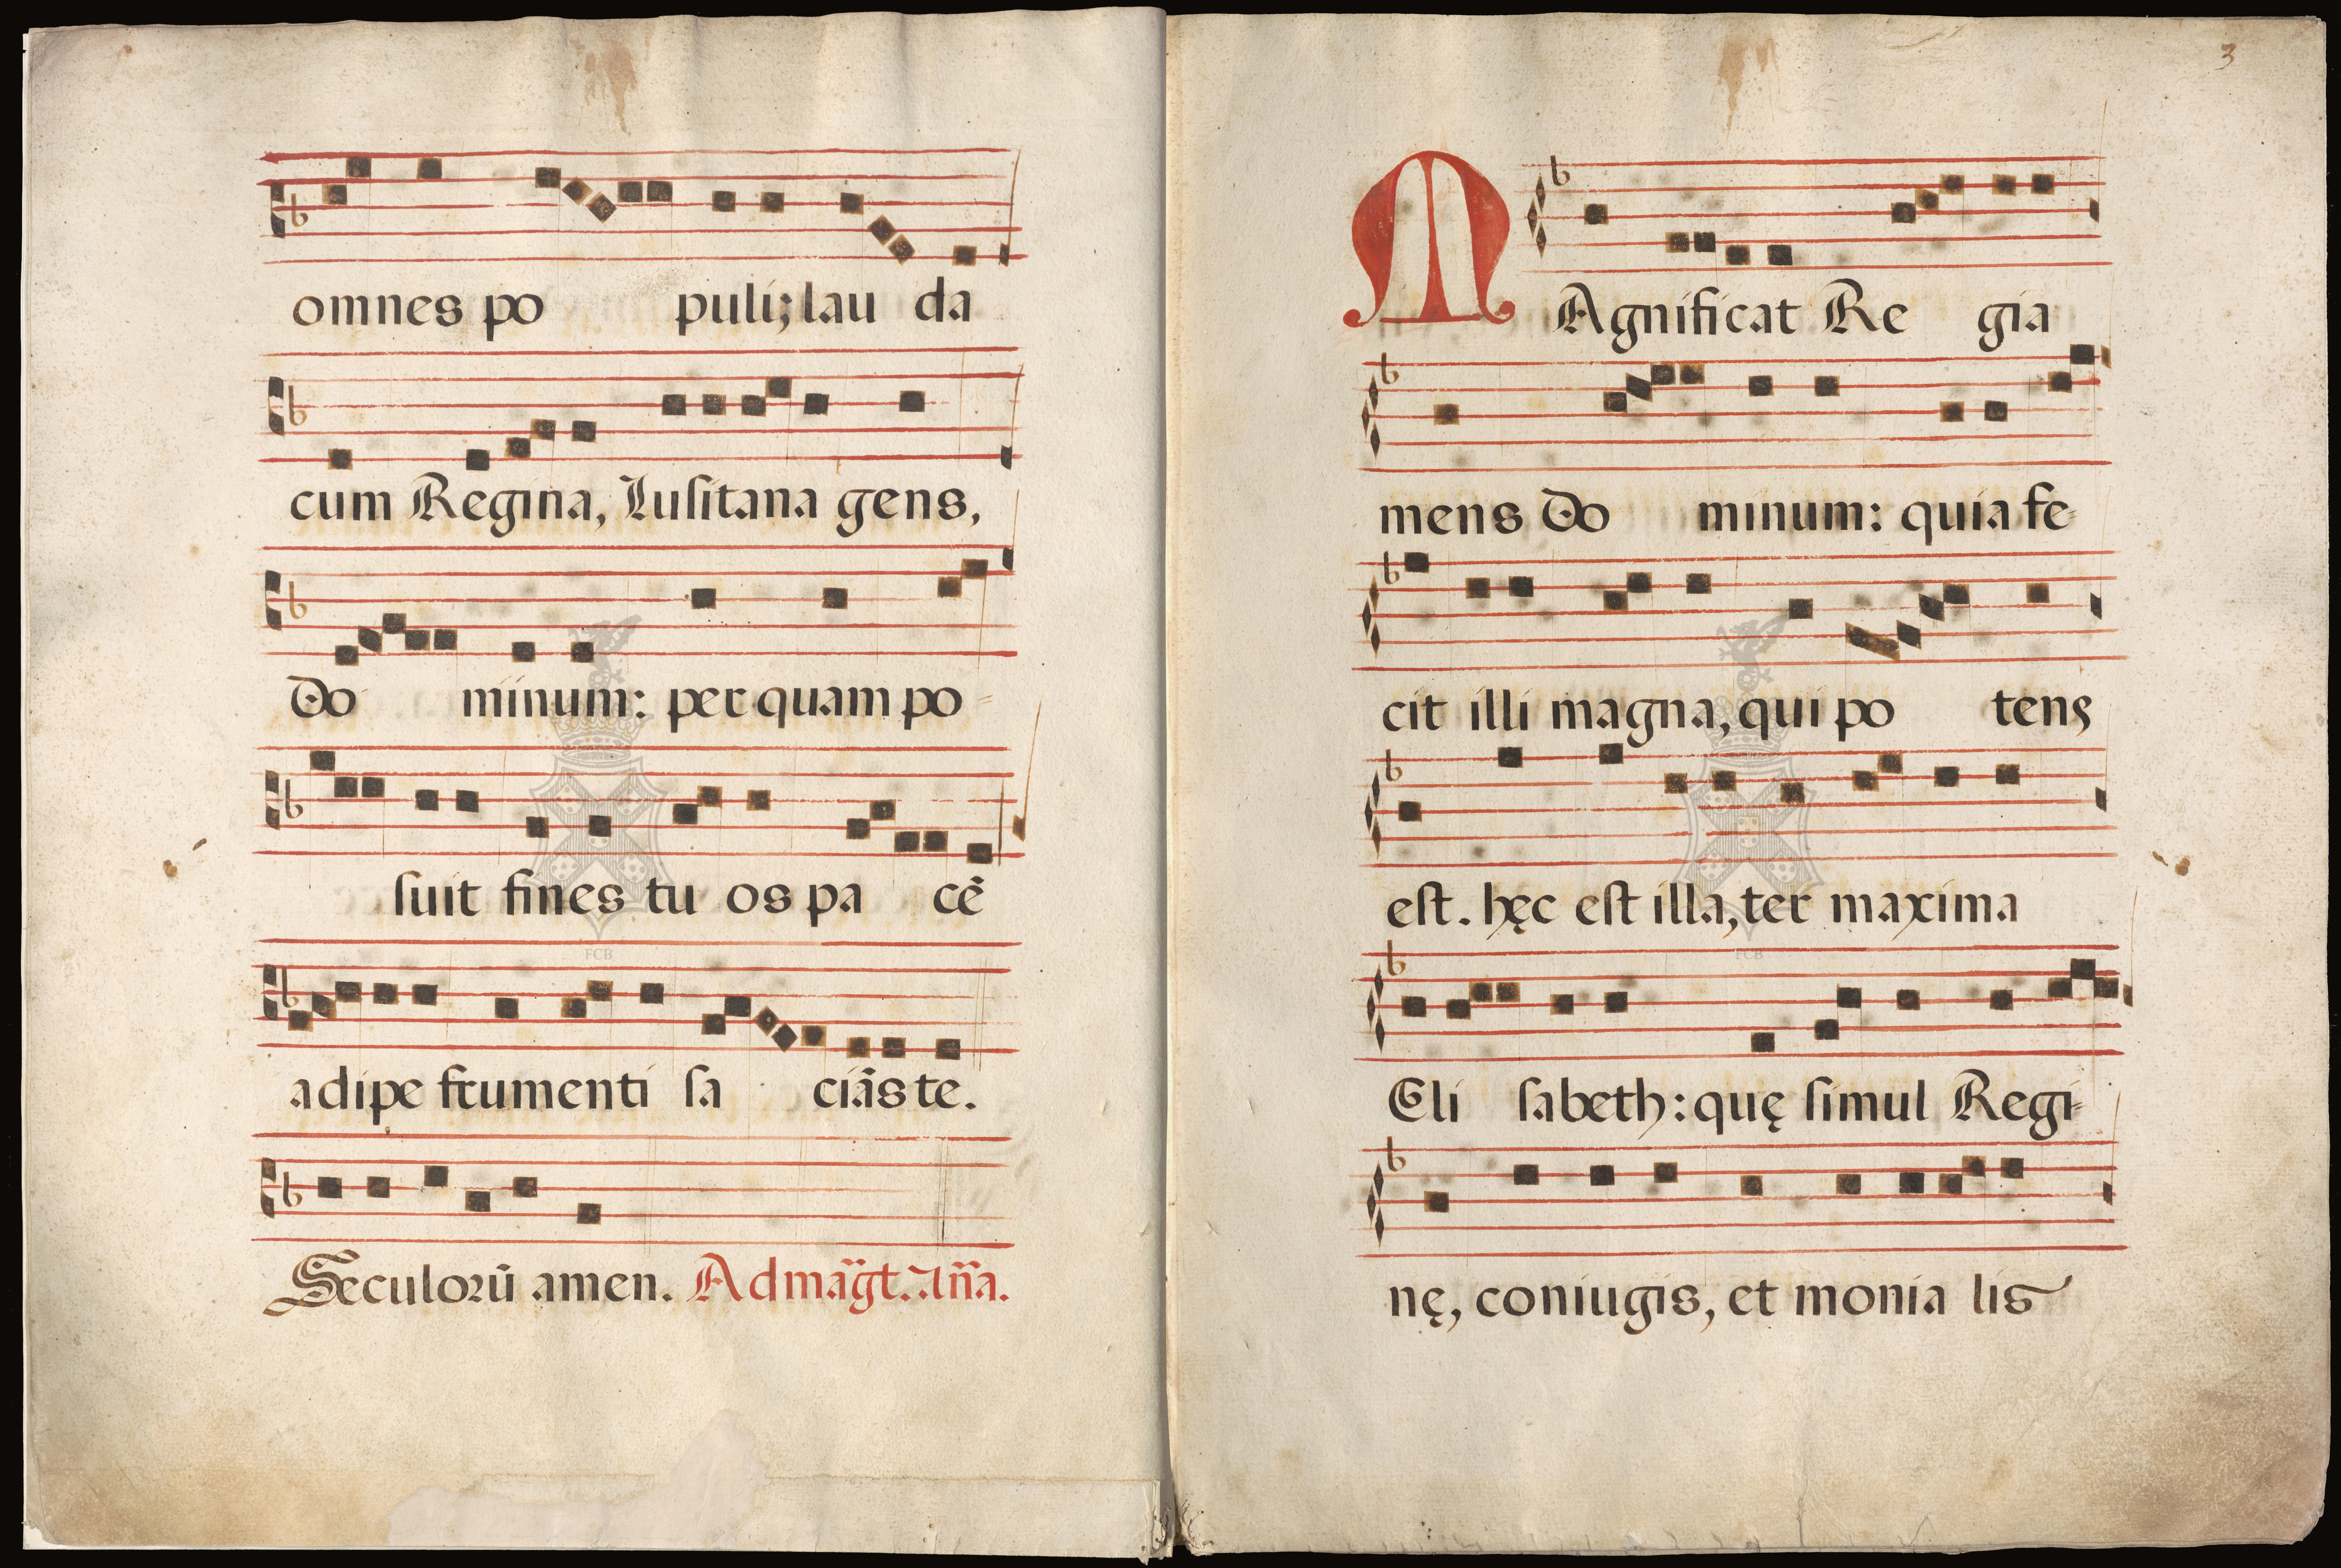 omnes po puli; lau da
cum Regina, Lusitana gens,
Do minum: per quam po-
suit fines tu os pa cē
FCB
adipe frumenti sa ciãs te.
Seculorū amen. Ad mag̃t. Añа.
3
MAgnificat Re gia
mens Do minum: quia fe-
cit illi magna, qui po tens
est. hęc est illa, ter maxima
FCB
Eli sabeth: quę simul Regi-
nę, coniugis, et monia lis